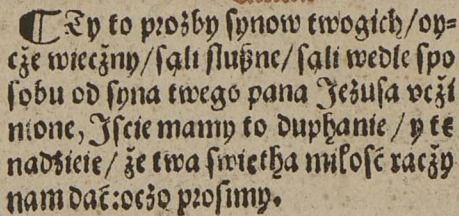 ¶Ty to prożby synow twogich/oy⸗
cże wiecżny/sąli slußne/sąli wedle spo
sobu od syna twego pana Jezusa vcżi
nione, Iscie mamy to duphanie/y tę
nadzieię/że twa swiętha miłość racży
nam dać:oczo prosimy.